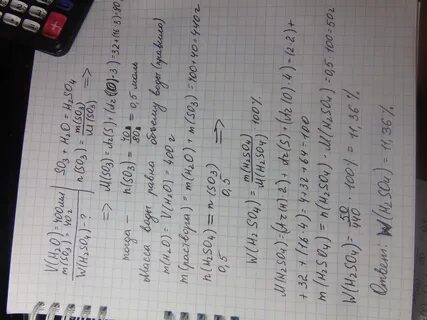 V(H₂O) = 400 мл
m(SO₃) = 40 г
W(H₂SO₄) - ?
SO₃ + H₂O = H₂SO₄
n(SO₃) = m(SO₃) / M(SO₃) =>
=> M(SO₃) = dr(S) + (dr(O)·3) = 32 + (16·3) = 80
тогда - n(SO₃) = 40 / 80 = 0,5 моль
Масса воды равна объему воды (правило)
m(H₂O) = V(H₂O) = 400 г
m(раствора) = m(H₂O) + m(SO₃) = 400 + 40 = 440 г
n(H₂SO₄) = n(SO₃) =>
0,5 0,5
W(H₂SO₄) = m(H₂SO₄) / M(H₂SO₄) · 100%
M(H₂SO₄) = (dr(H)·2) + dr(S) + (dr(O)·4) = (2·2) +
+ 32 + (16·4) = 4 + 32 + 64 = 100
m(H₂SO₄) = n(H₂SO₄) · M(H₂SO₄) = 0,5·100 = 50 г
W(H₂SO₄) = 50 / 440 · 100% = 11,36%
Ответ: W(H₂SO₄) = 11,36%.